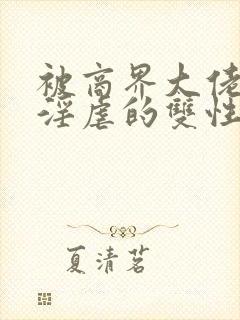 被商界大佬
淫虐的雙性
夏清茗